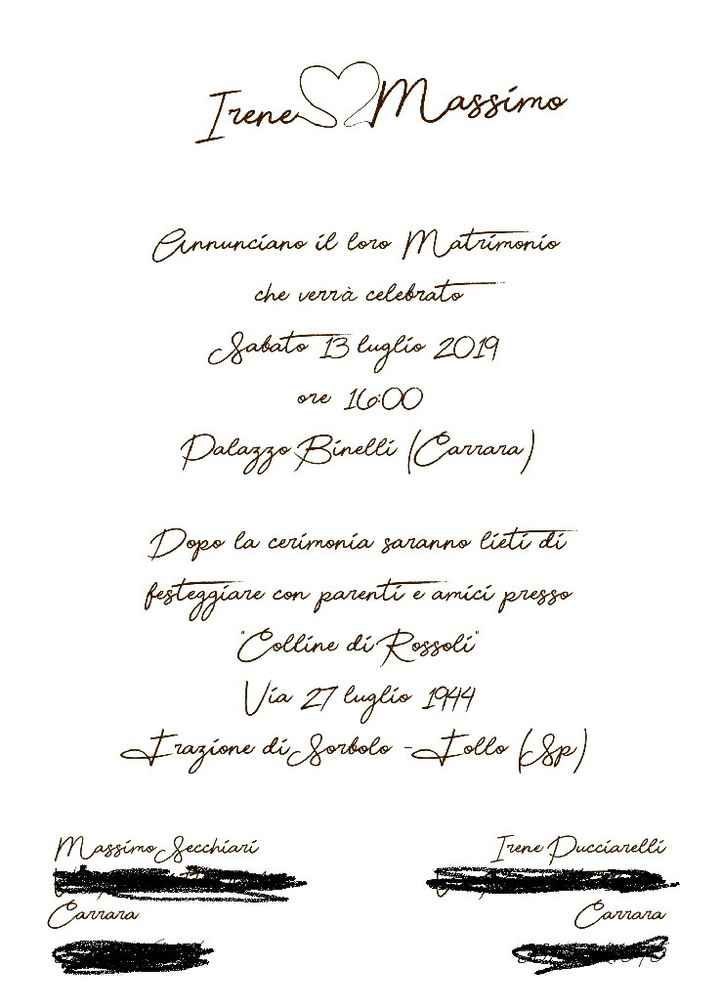 Irene Massimo
Annunciano il loro Matrimonio
che verrà celebrato
Sabato 13 luglio 2019
ore 16:00
Palazzo Binelli (Carrara)
Dopo la cerimonia saranno lieti di
festeggiare con parenti e amici presso
"Colline di Rossoli"
Via 27 luglio 1944
Frazione di Sorbolo - Follo (Sp)
Massimo Secchiari
Irene Pucciarelli
Carrara
Carrara